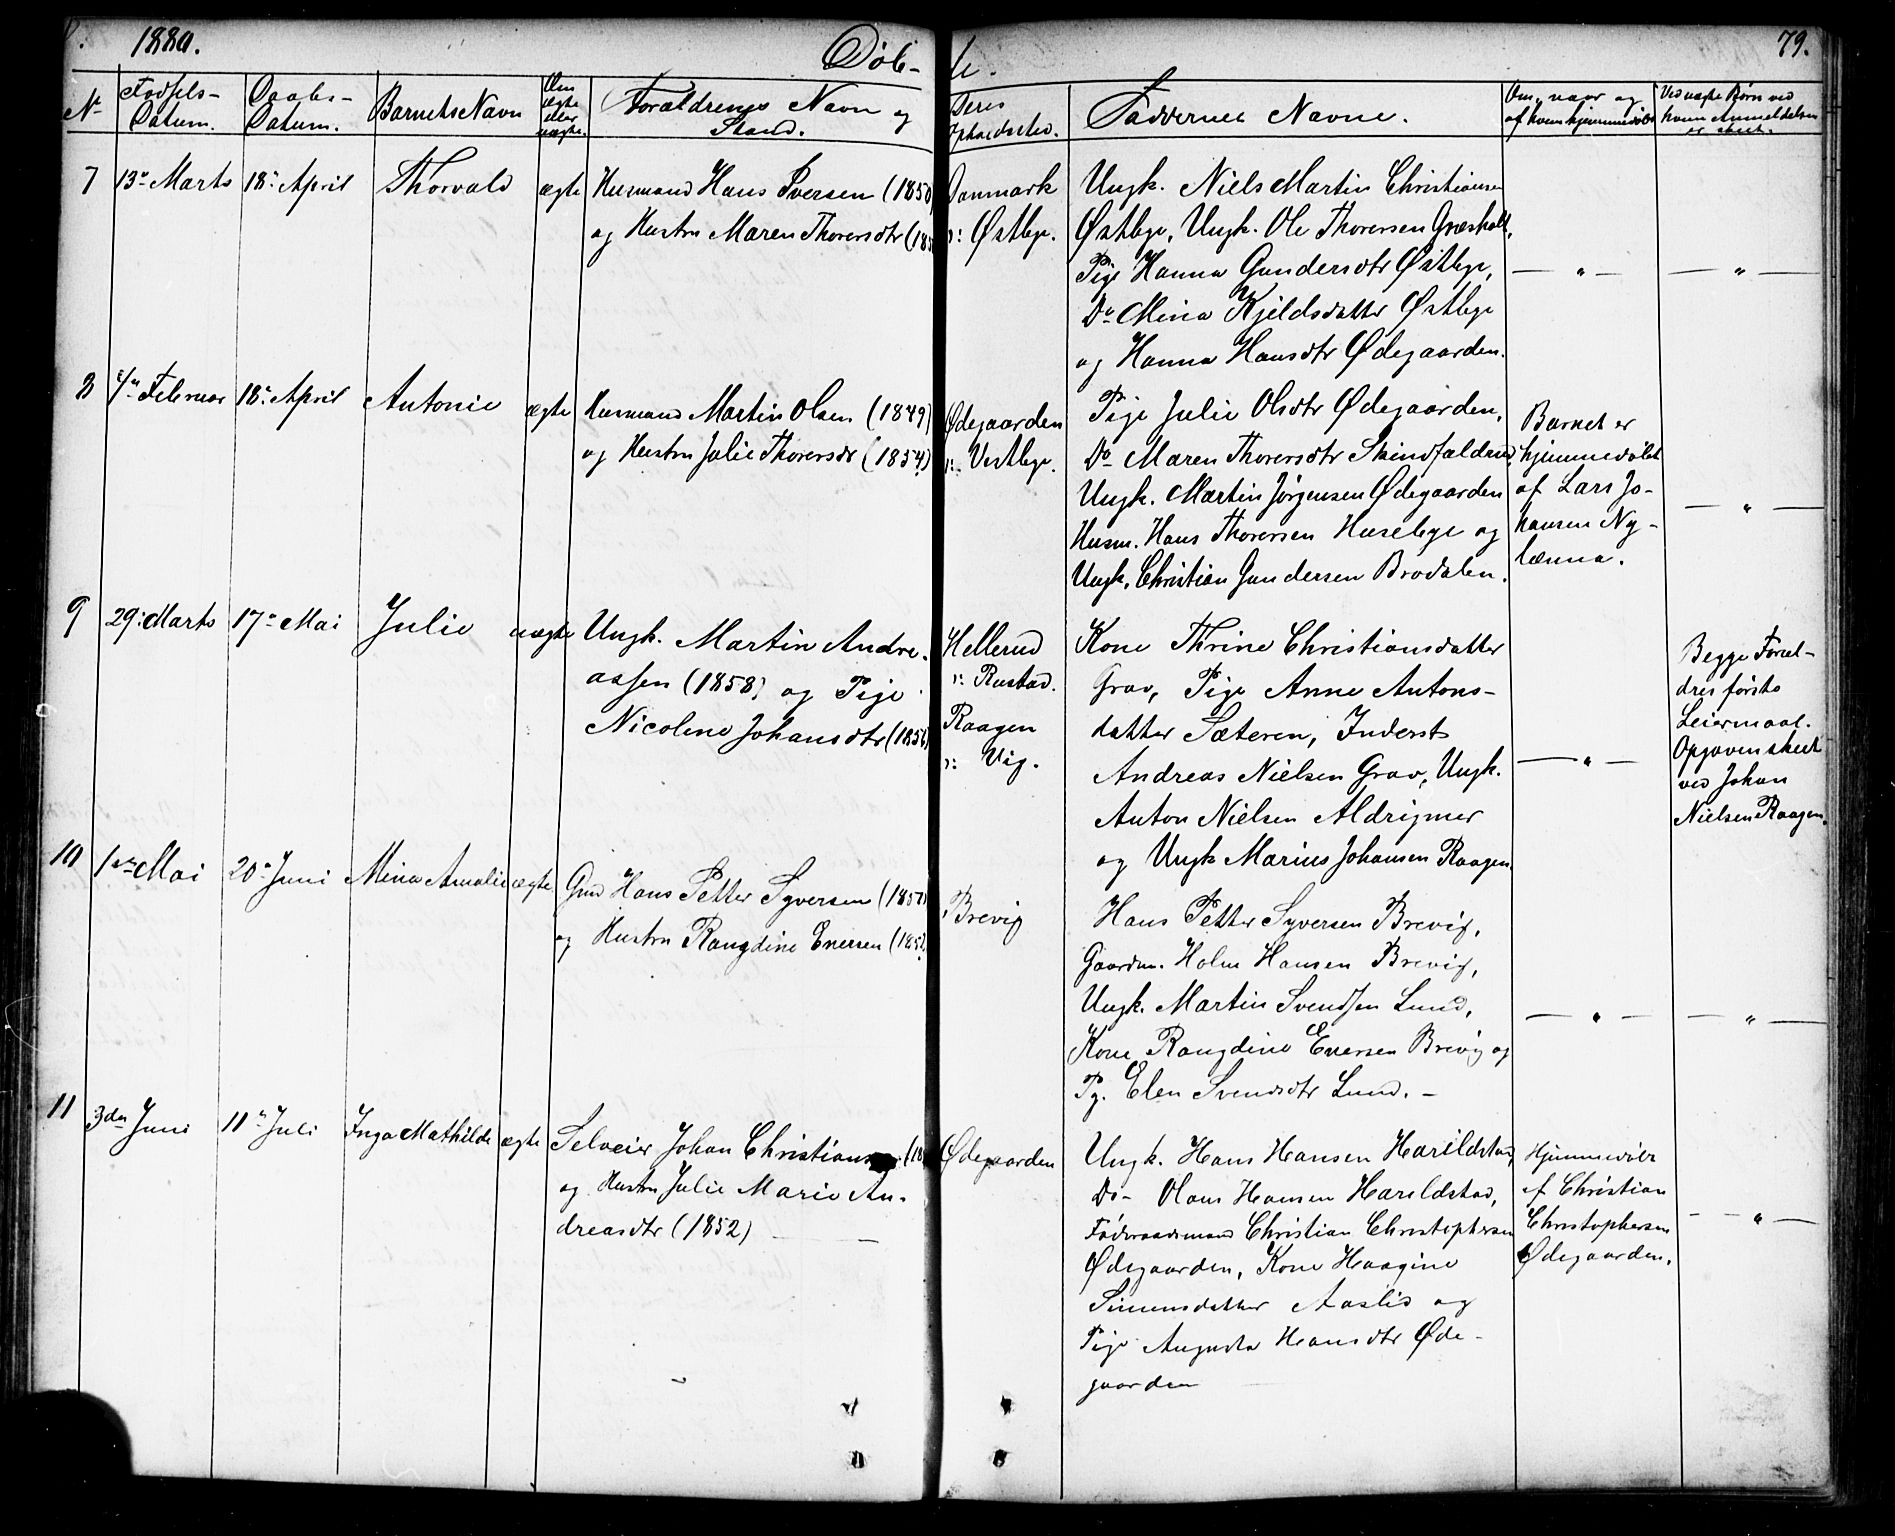 1880.
Døb-
te.
79.
No
Fødsels-
Datum.
Daabs-
Datum.
Barnets Navn
Om
ægte
eller
uægte.
Forældrenes Navn og
Stand.
Deres
Opholdssted.
Faddernes Navne.
Om, naar og
af hvem hjemmedøbt
Ved uægte Børn ved
hvem Anmeldelsen
er skeet.
7
13de Marts
18de April
Thorvald
ægte
Husmand Hans Iversen (1850
og Hustru Maren Thorersdtr (185
Danmark
u: Østbye.
Ungk. Niels Martin Christiansen
Østbye, Ungk. Ole Thorersen Græsholt,
Pige Hanna Gundersdtr Østbye,
Do Mina Kjeldsdatter Østbye
og Hanna Hansdtr Ødegaarden.
— " —
— " —
8
4de Februar
18de April
Antonie
ægte
Husmand Martin Olsen (1849)
og Hustru Julie Thorersdr (1854)
Ødegaarden
u: Vestbye.
Pige Julie Olsdtr Ødegaarden,
Do Maren Thorersdtr Skindfaldrud,
Ungk. Martin Jørgensen Ødegaarden
Husm. Hans Thorersen Husebye og
Ungk. Christian Gundersen Brodalen.
Barnet er
hjemmedøbt
af Lars Jo-
hansen Ny-
lænna.
— " —
9
29de Marts
17de Mai
Julie
uægte
Ungk. Martin Andre-
assen (1858) og Pige
Nicoline Johansdtr (185
Hellerud
u: Rustad.
Raagen
u: Vig.
Kone Thrine Christiansdatter
Grav, Pige Anne Antons-
datter Sæteren, Inderst
Andreas Nielsen Grav, Ungk.
Anton Nielsen Aldrigmer
og Ungk Marius Johansen Raagen.
— " —
Begge Foræl-
dres første
Leiermaal.
Opgaven skeet
ved Johan
Nielsen Raagen.
10
1ste Mai
20de Juni
Mina Amalie
ægte
Gmd Hans Petter Syversen (185
og Hustru Rangdine Enersen (185
Brevig
Hans Petter Syversen Brevig,
Gaardm. Holm Hansen Brevig,
Ungk. Martin Svendsen Lund,
Kone Rangdine Enersen Brevig og
Pg. Elen Svendsdtr Lund. —
— " —
— " —
11
3die Juni
11te Juli
Inga Mathilde
ægte
Selveier Johan Christiansen (18
og Hustru Julie Marie An-
dreasdtr (1852) — —
Ødegaarden
Ungk. Hans Hansen Harildstad,
Do- Olaus Hansen Harildstad,
Føderaadsmand Christian Christophersen
Ødegaarden, Kone Haagine
Simensdatter Aaslid og
Pige Augusta Hansdtr Øde-
gaarden
Hjemmedøbt
af Christian
Christophersen
Ødegaarden.
— " —